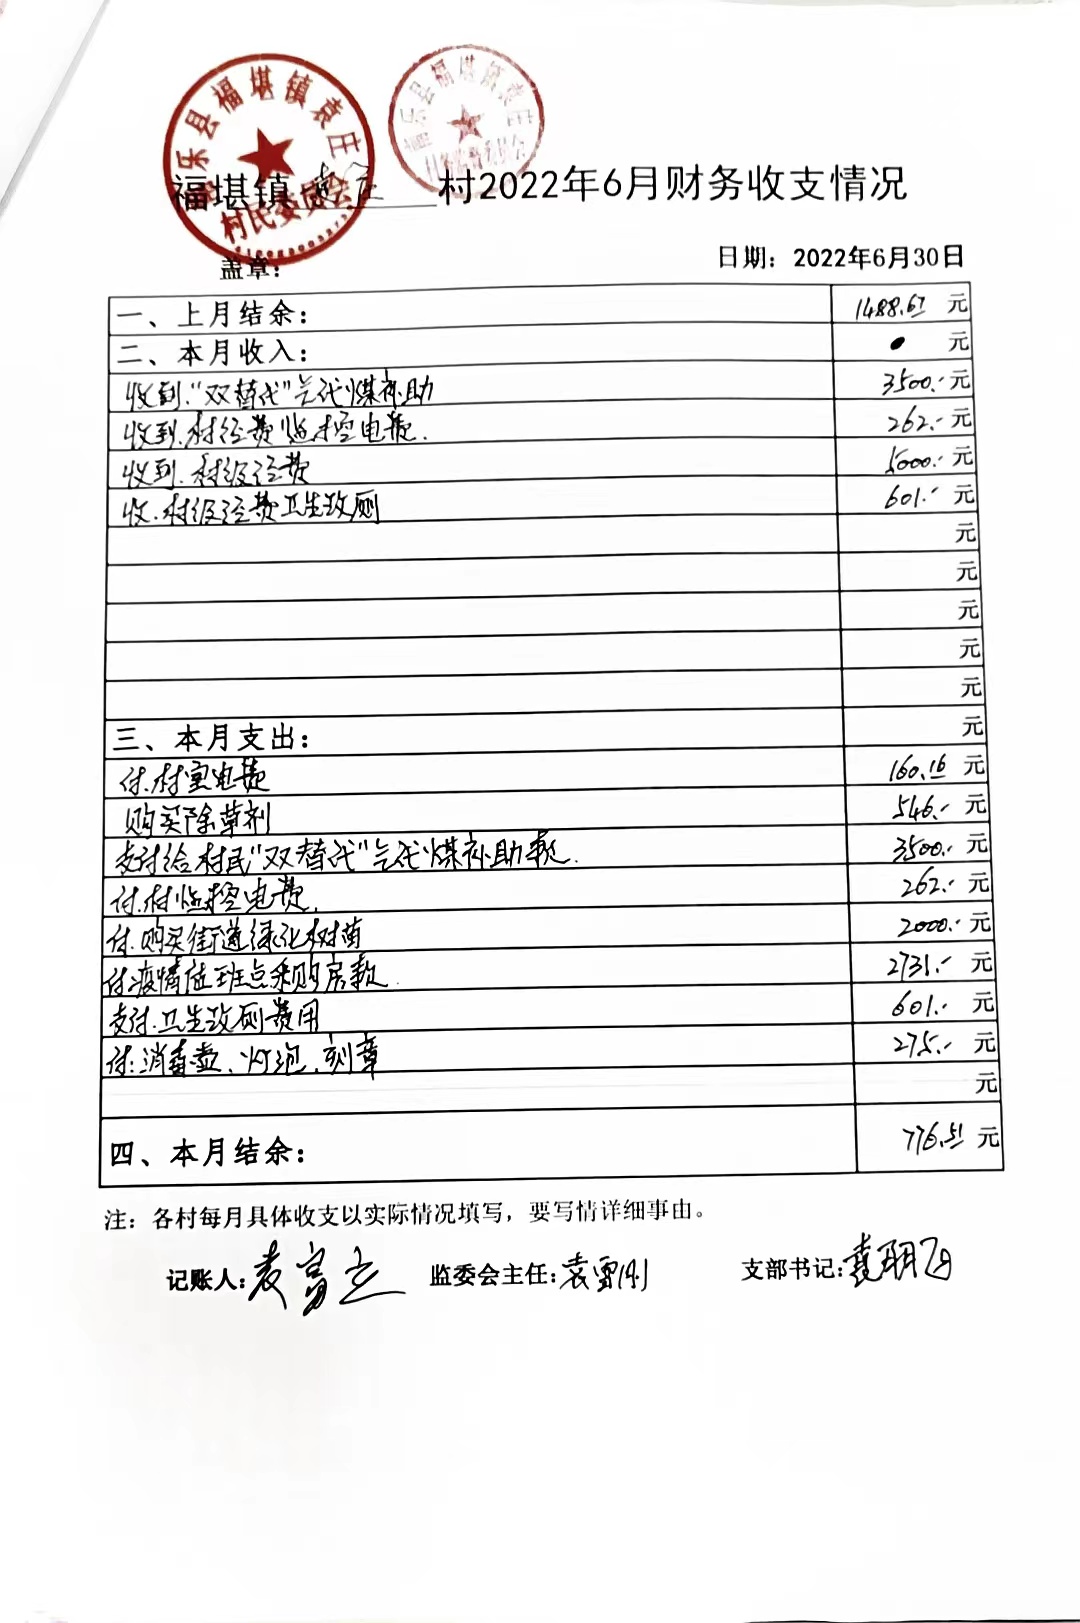 南乐县福堪镇袁庄
村民委员会
南乐县福堪镇袁庄
村务监督委员会
福堪镇袁庄村2022年6月财务收支情况
盖章：
日期：2022年6月30日
一、上月结余： 1488.67 元
二、本月收入： 元
收到."双替代"气代煤补助 3500.- 元
收到.村经费监控电费. 262.- 元
收到.村级经费 5000.- 元
收.村级经费卫生改厕 601.- 元
元
元
元
元
元
三、本月支出： 元
付.村室电费 160.16 元
购买除草剂 546.- 元
支付给村民"双替代"气代煤补助款. 3500.- 元
付.村监控电费. 262.- 元
付.购买街道绿化树苗 2000.- 元
付疫情值班点采购房款. 2731.- 元
支付.卫生改厕费用 601.- 元
付:消毒壶、灯泡、刻章 275.- 元
元
四、本月结余： 776.51 元
注：各村每月具体收支以实际情况填写，要写情详细事由。
记账人: 监委会主任:袁雪刚 支部书记:袁明